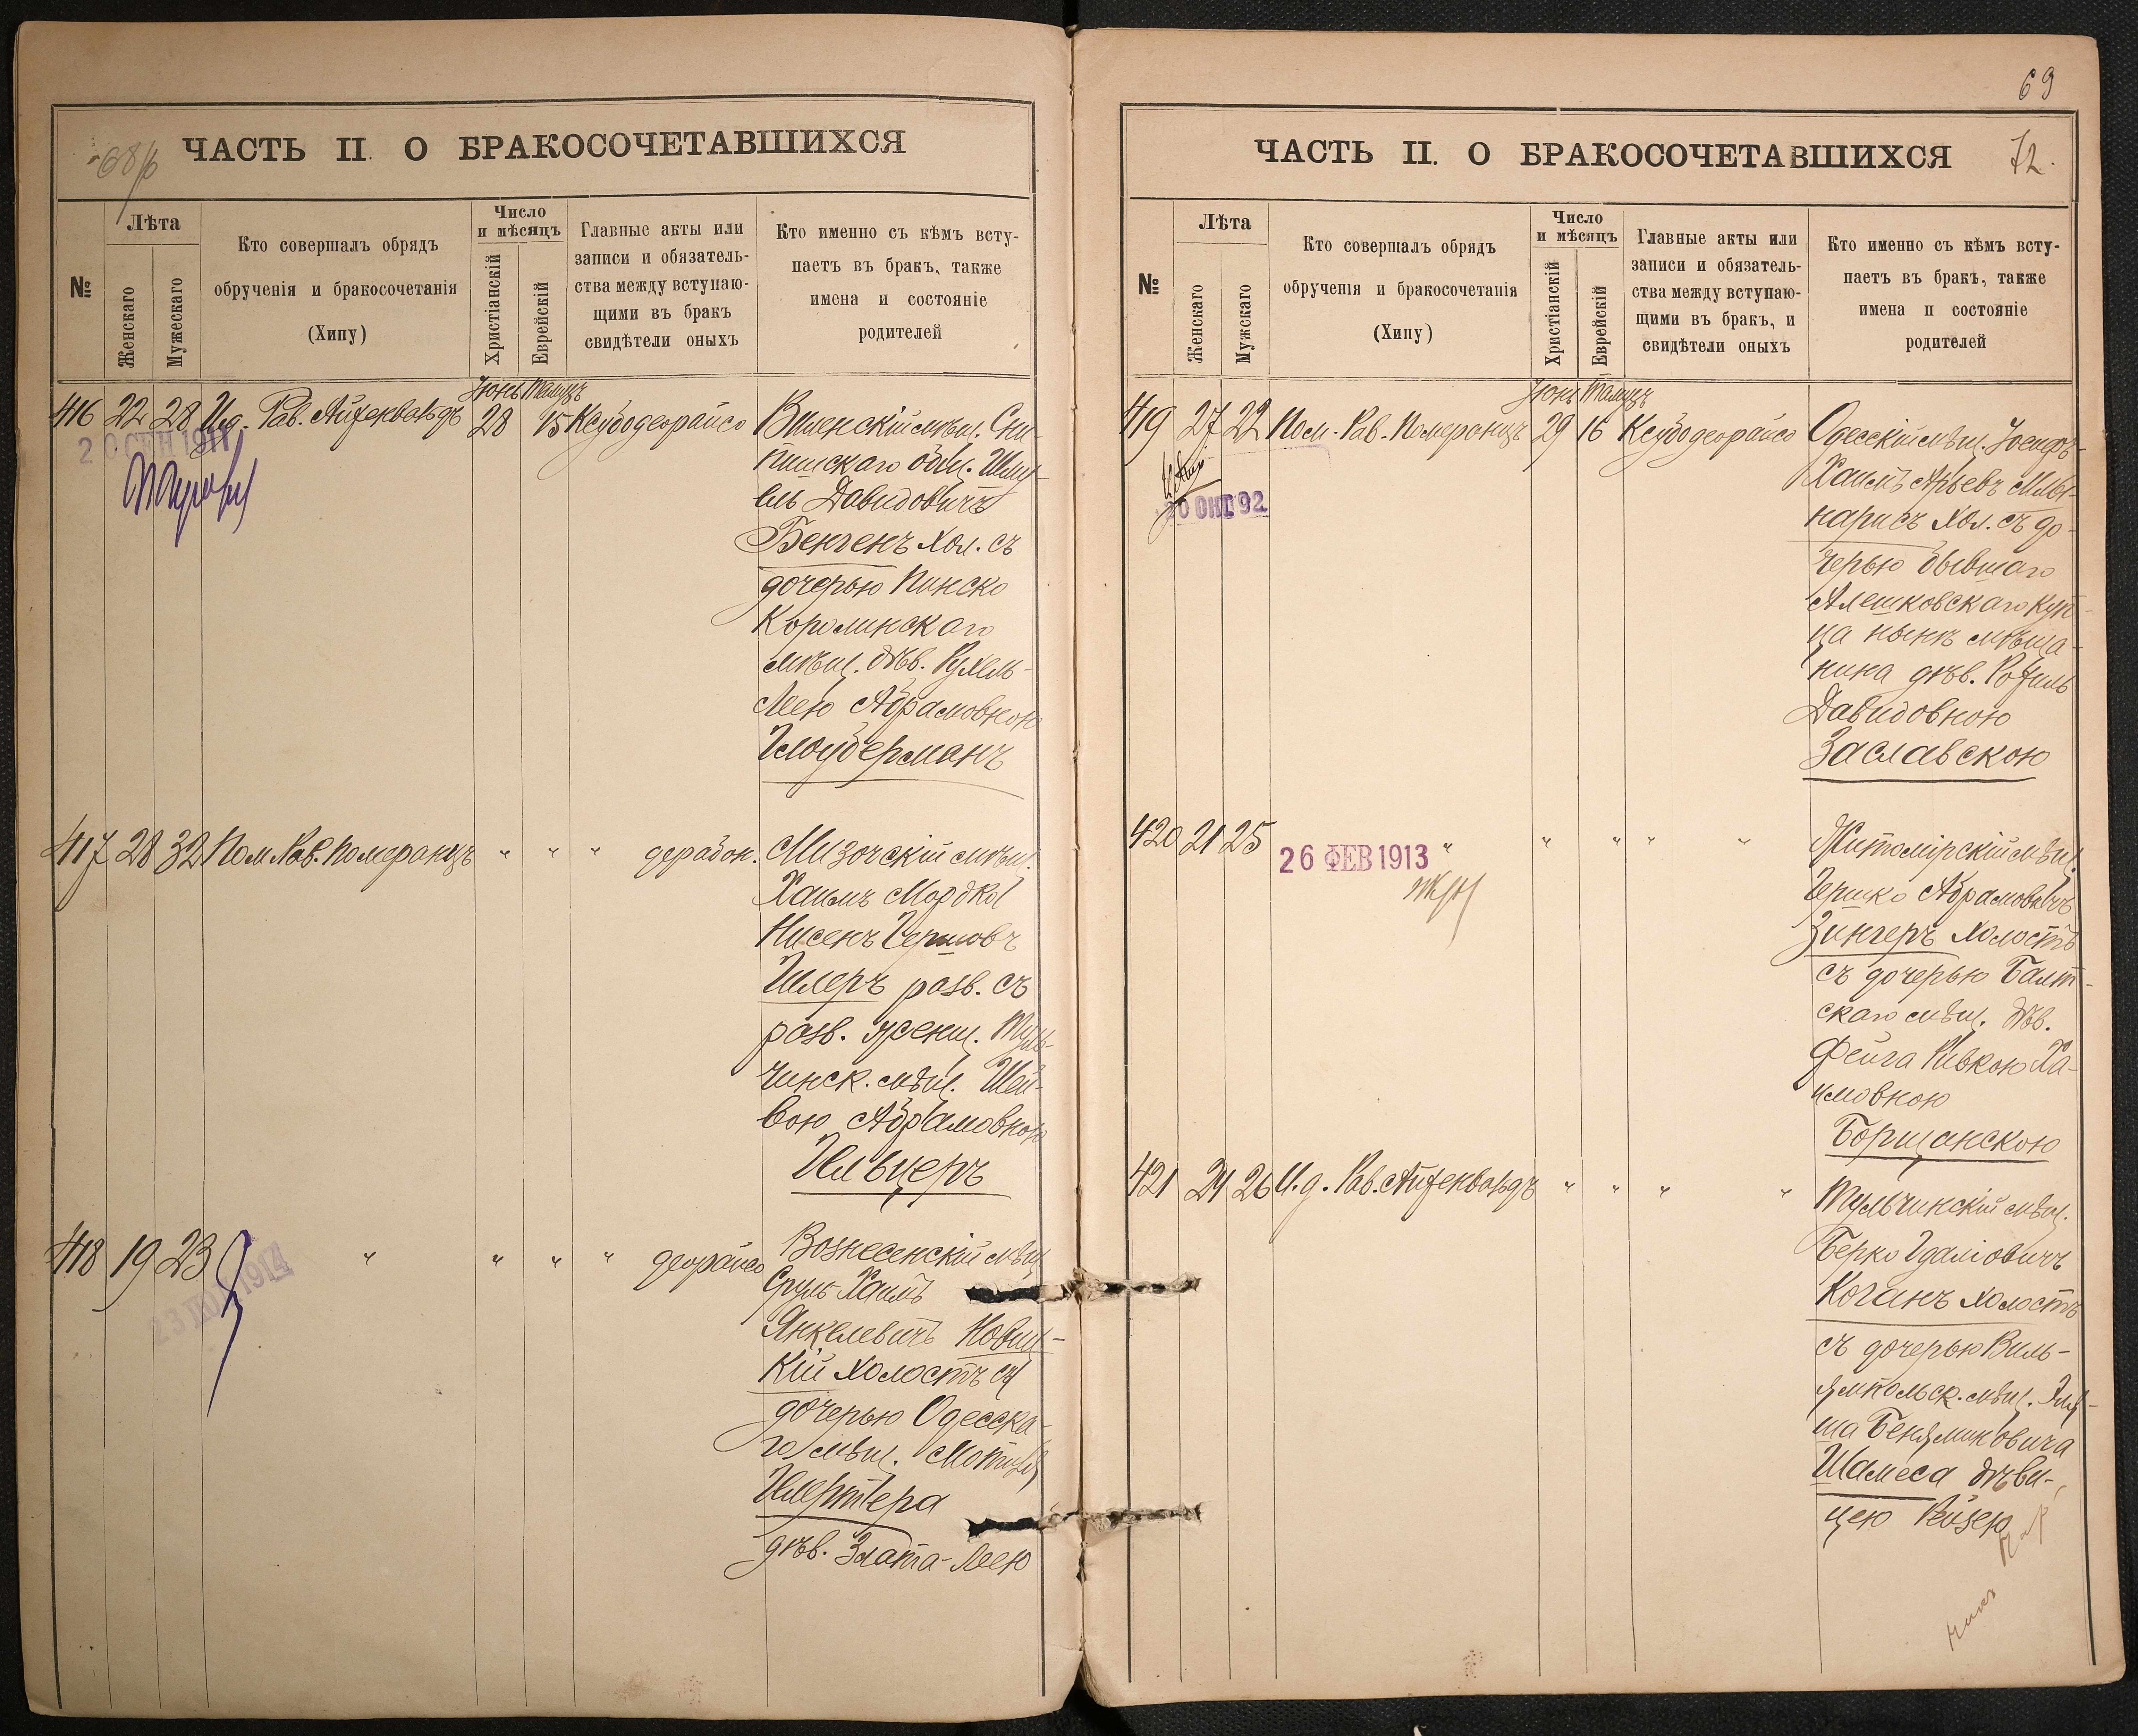 68 об
ЧАСТЬ II. О БРАКОСОЧЕТАВШИХСЯ
№
Лѣта
Женскаго
Мужескаго
Кто совершалъ обрядъ
обрученія и бракосочетанія
(Хипу)
Число
и мѣсяцъ
Христіанскій
Еврейскій
Главные акты или
записи и обязатель-
ства между вступаю-
щими въ бракъ
свидѣтели оныхъ
Кто именно съ кѣмъ всту-
паетъ въ бракъ, также
имена и состояніе
родителей
Іюнь Тамузъ
416 22 28 И.д. Рав. Айзенвальдъ 28 15 Ксубодеорайсо
Виленскій мѣщ. Сни-
пишскаго общ. Шму-
ель Давидовичъ
Бенгенъ хол. съ
дочерью Пинско
Каролинскаго
мѣщ. дѣв. Рухель-
Лею Абрамовною
Глоуберманъ
20 СЕН 1911
417 28 32 Пом. Рав. Померанцъ " " " дерабон.
Мизочскій мѣщ.
Хаимъ Мордко
Нисенъ Гершовъ
Гилеръ разв. съ
разв. женщ. Туль-
чинск. мѣщ. Шей-
вою Абрамовною
Гельцеръ
418 19 23 " " " " деорайсо
Вознесенскій мѣщ.
Сруль Хаимъ
Янкелевичъ Новиц-
кій холостъ съ
дочерью Одесска-
го мѣщ.
дѣв. Злата-Лею
1914
69
ЧАСТЬ II. О БРАКОСОЧЕТАВШИХСЯ
72.
№
Лѣта
Женскаго
Мужскаго
Кто совершалъ обрядъ
обрученія и бракосочетанія
(Хипу)
Число
и мѣсяцъ
Христіанскій
Еврейскій
Главные акты или
записи и обязатель-
ства между вступаю-
щими въ бракъ, и
свидѣтели оныхъ
Кто именно съ кѣмъ всту-
паетъ въ бракъ, также
имена и состояніе
родителей
Іюнь Тамузъ
419 27 22 Пом. Рав. Померанцъ 29 16 Ксубодеорайсо
Одесскій мѣщ. Іосифъ
Хаимъ Арьевъ Мль-
нарисъ хол. съ до-
черью бывшаго
Алешковскаго куп-
ца нынѣ мѣща-
нина дѣв. Рейзиль
Давидовною
Заславскою
20 ОКТ 92
420 21 25 " " " " "
Житомірскій мѣщ.
Гершко Абрамовичъ
Зингеръ холостъ
съ дочерью Балт-
скаго мѣщ. дѣв.
Фейга Ривкою Ха-
имовною
Борщанскою
26 ФЕВ 1913
421 21 26 И.д. Рав. Айзенвальдъ " " " "
Тульчинскій мѣщ.
Берко Гдаліовичъ
Коганъ холостъ
съ дочерью Виль-
ямпольск. мѣщ. Эля-
ша Беняминовича
Шамеса дѣви-
цею Рейзею